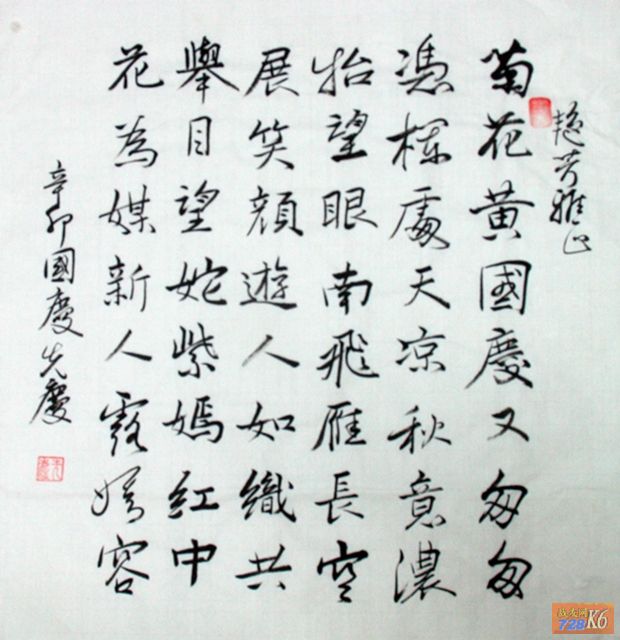 艳芳雅正
菊花黃國慶又匆匆
憑欄處天凉秋意濃
抬望眼南飛雁長空
展笑顔遊人如織共
舉目望姹紫嫣紅中
花為媒新人露嬌容
辛卯國慶先慶
728 K6